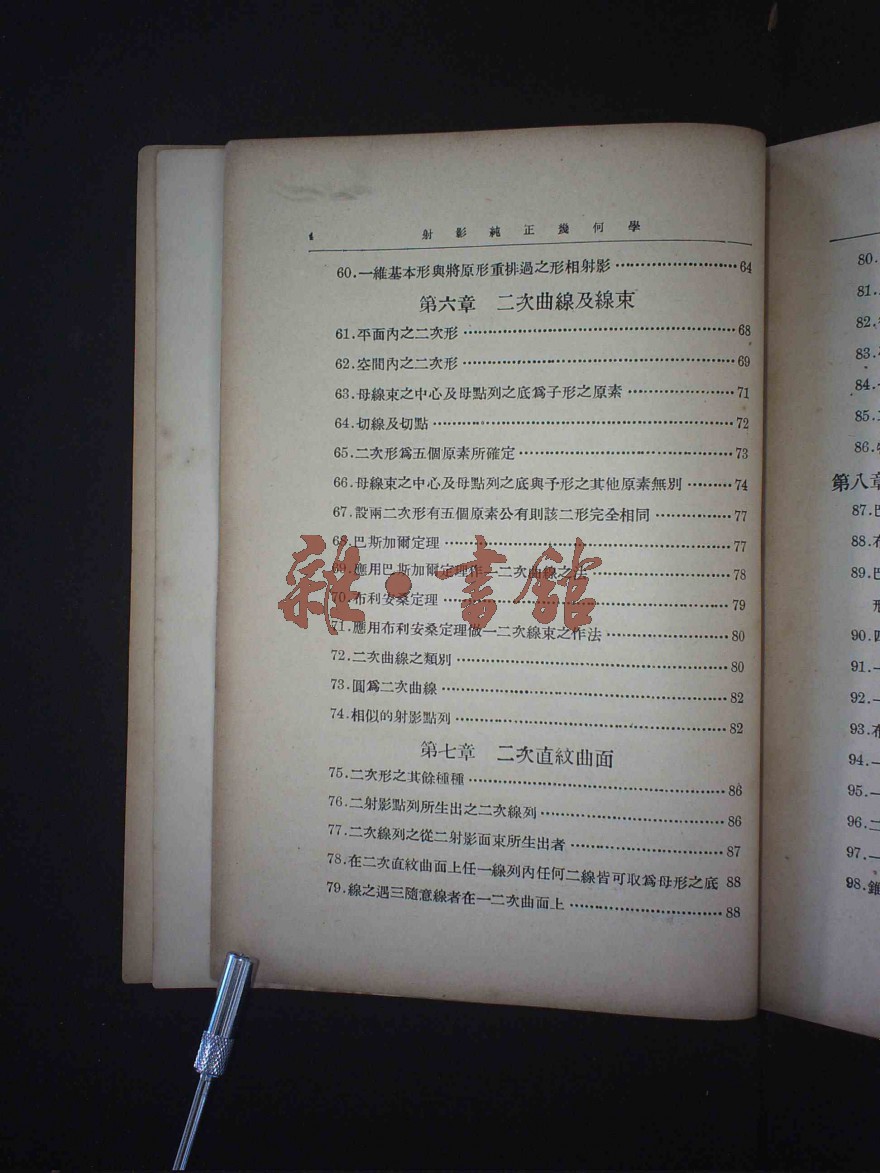 4 射影純正幾何學
60.一維基本形與將原形重排過之形相射影 64
第六章 二次曲線及線束
61.平面內之二次形 68
62.空間內之二次形 69
63.母線束之中心及母點列之底爲子形之原素 71
64.切線及切點 72
65.二次形爲五個原素所確定 73
66.母線束之中心及母點列之底與予形之其他原素無別 74
67.設兩二次形有五個原素公有則該二形完全相同 77
68.巴斯加爾定理 77
69.應用巴斯加爾定理作一二次曲線之法 78
70.布利安桑定理 79
71.應用布利安桑定理做一二次線束之作法 80
72.二次曲線之類別 80
73.圓爲二次曲線 82
74.相似的射影點列 82
第七章 二次直紋曲面
75.二次形之其餘種種 86
76.二射影點列所生出之二次線列 86
77.二次線列之從二射影面束所生出者 87
78.在二次直紋曲面上任一線列內任何二線皆可取爲母形之底 88
79.線之遇三隨意線者在一二次曲面上 88
雜·書館
80.
81.
82.
83.
84.
85.
86.
第八章
87.巴
88.布
89.巴
形
90.四
91.一
92.一
93.布
94.一
95.一
96.二
97.一
98.錐